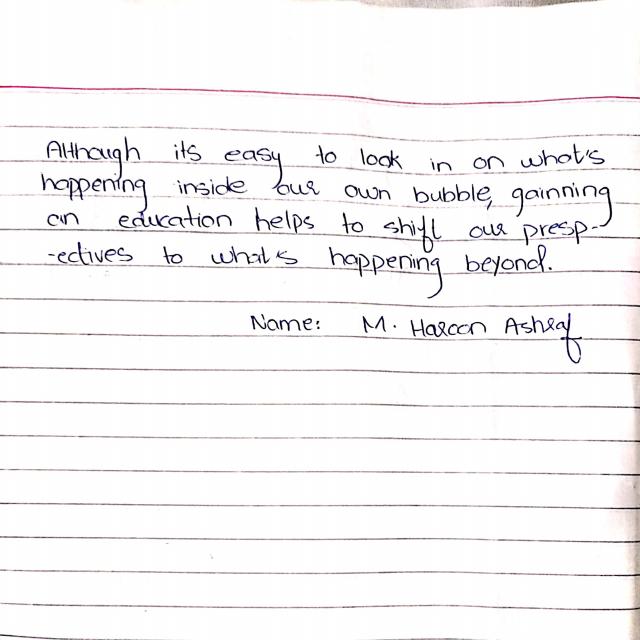 Although its easy to look in on what's
happening inside our own bubble, gainning
an education helps to shift our presp-
-ectives to what's happening beyond.
Name: M. Haroon Ashraf